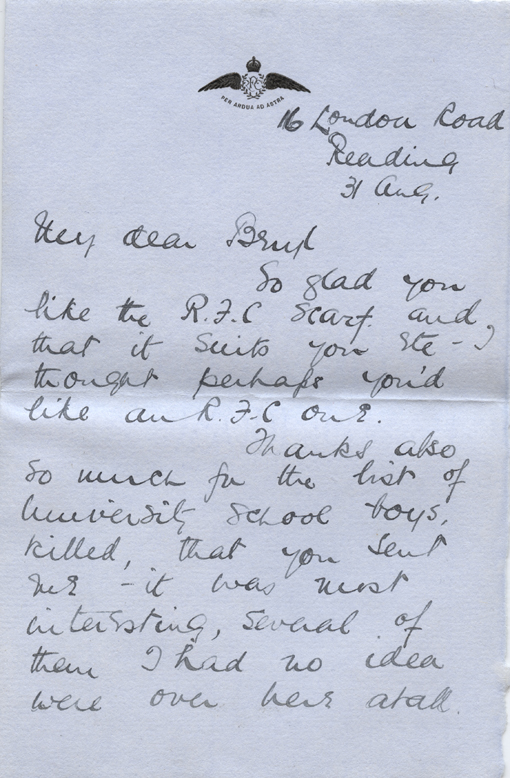 RFC
PER ARDUA AD ASTRA
16 London Road
Reading
31 Aug.
My dear Beryl
So glad you
like the R.F.C Scarf and,
that it suits you etc - I
thought perhaps you'd
like an R.F.C one.
Thanks also
so much for the list of
University School boys,
killed, that you sent
me - it was most
interesting, several of
them I had no idea
were over here atall.